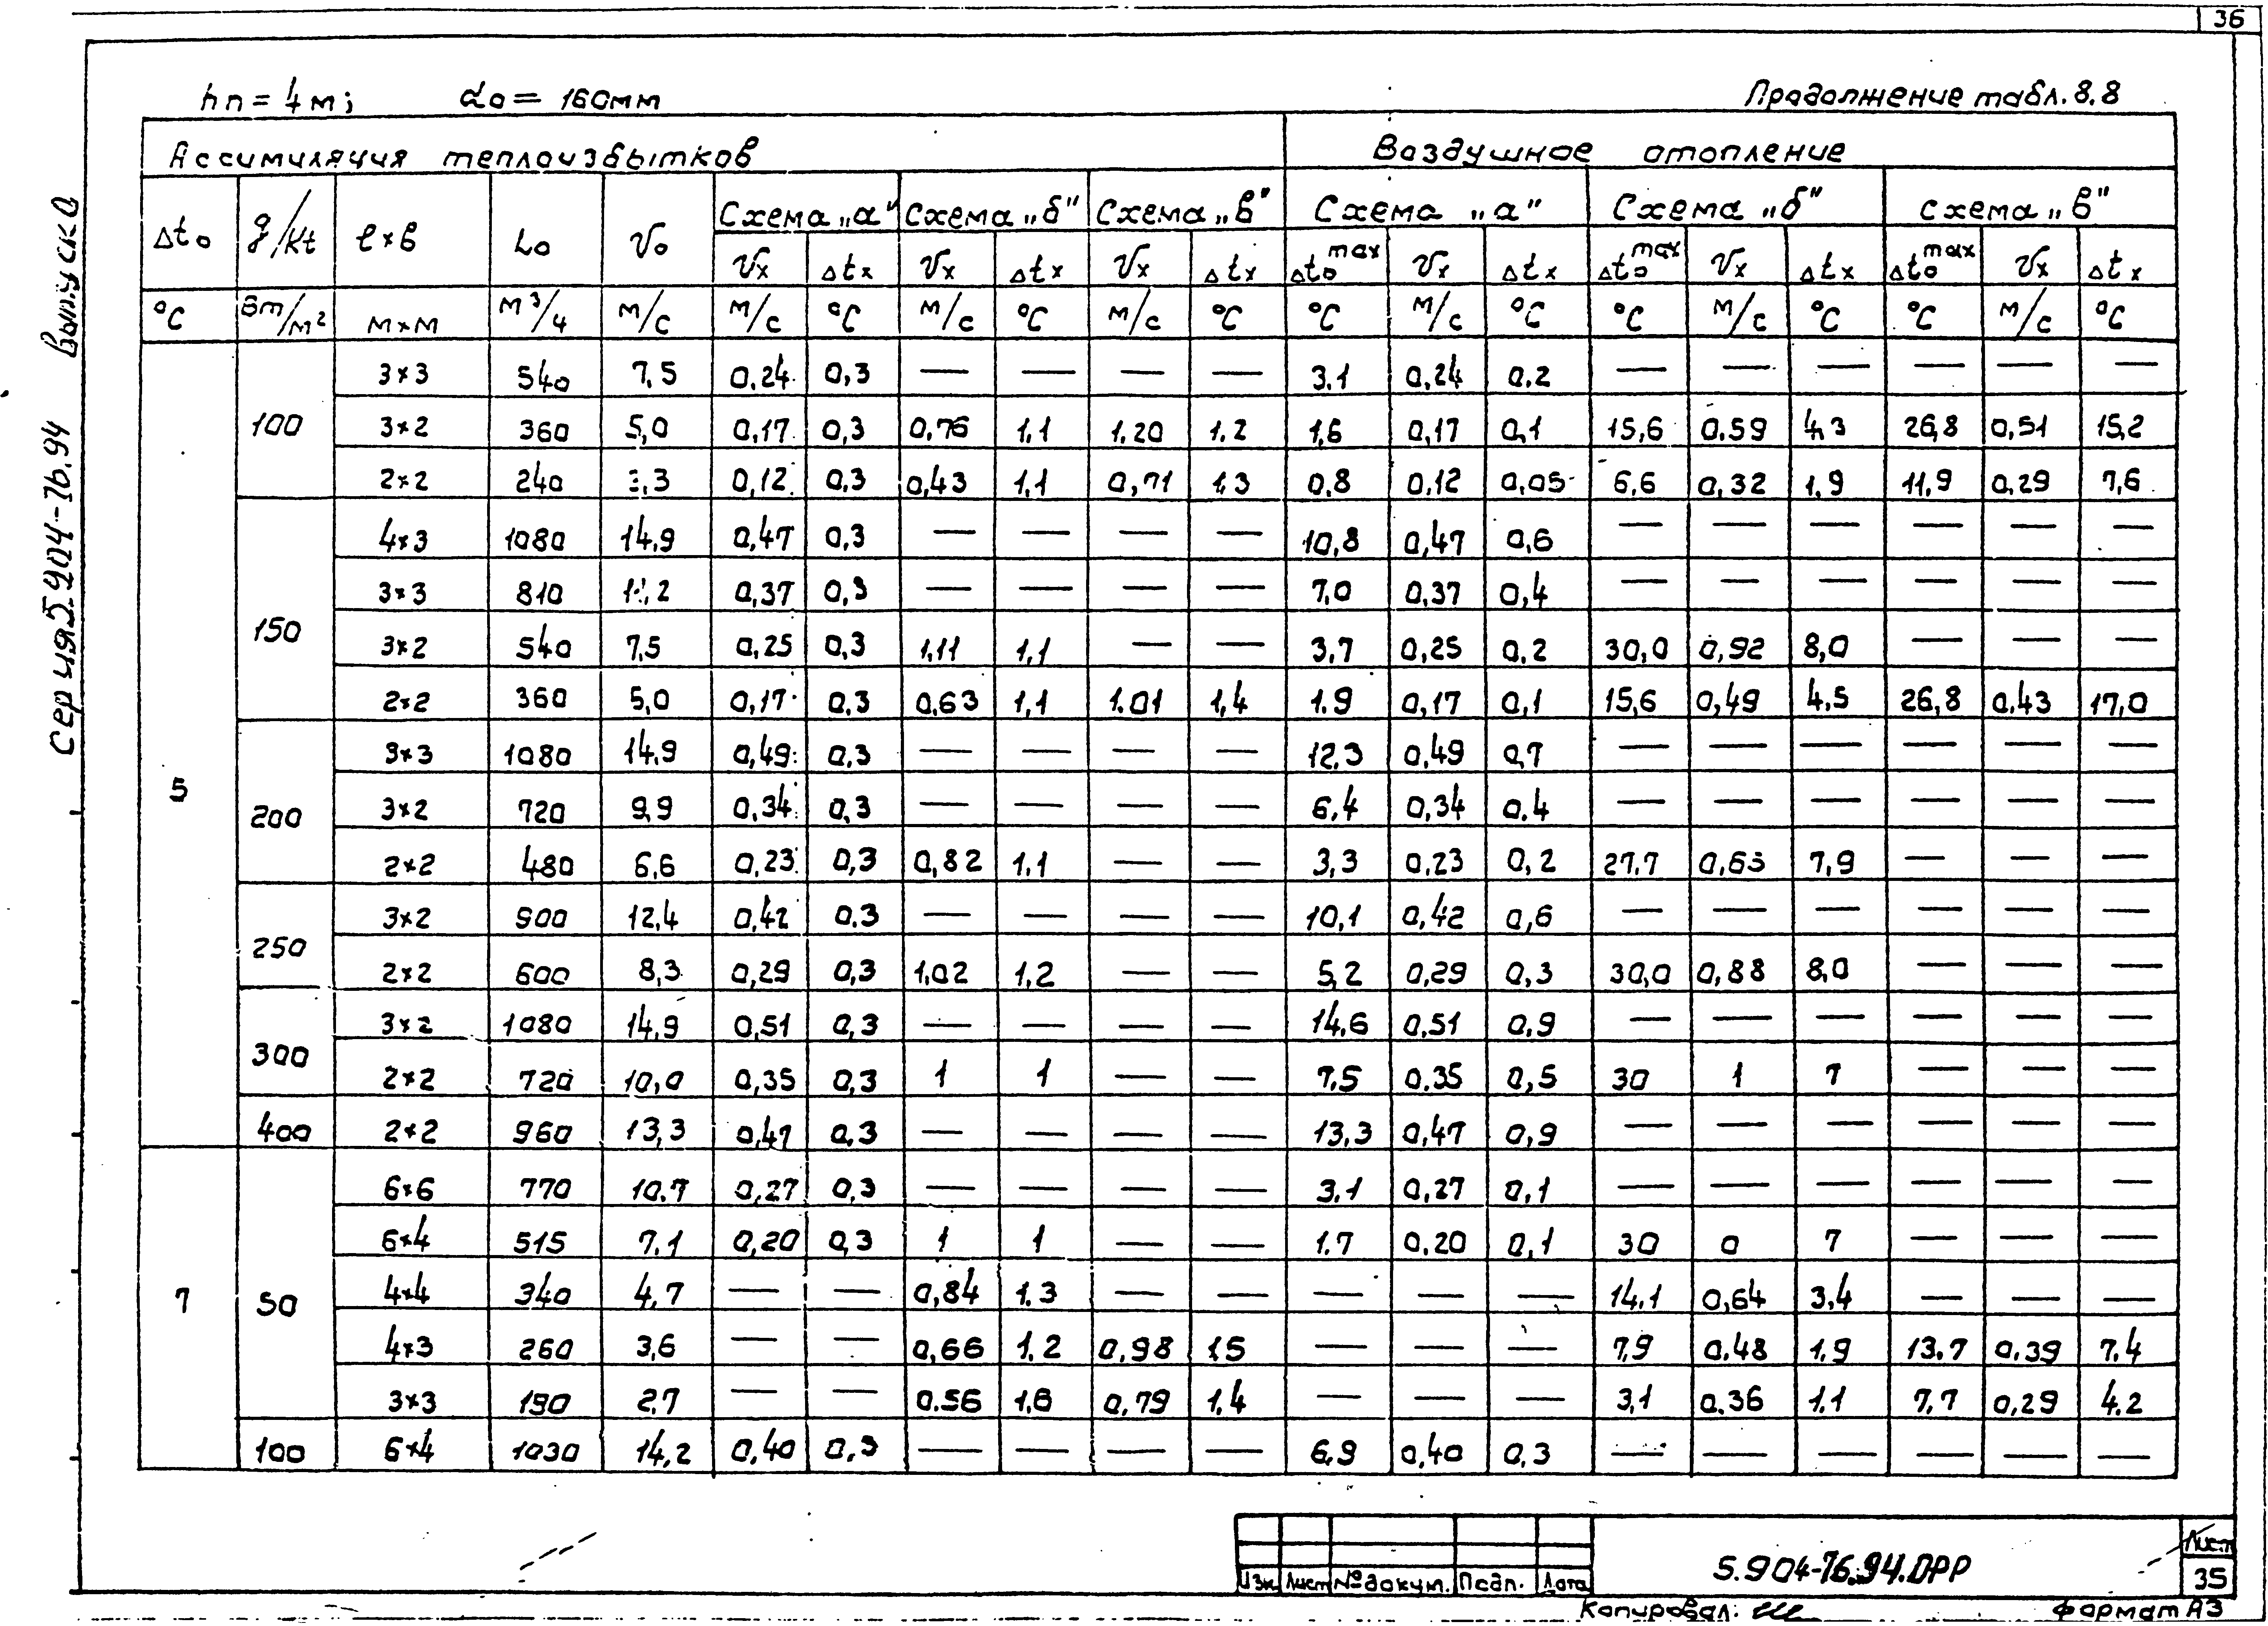 36
hп = 4 м; do = 160мм Продолжение табл. 8.8
Ассимиляция теплоизбытков Воздушное отопление
Δto q/Kt ℓ×в Lo Vo Схема „а" Схема „б" Схема „в" Схема „а" Схема „б" Схема „в"
Vx Δtx Vx Δtx Vx Δtx Δto max Vx Δtx Δto max Vx Δtx Δto max Vx Δtx
°C Вт/м² м×м м³/ч м/с м/с °C м/с °C м/с °C °C м/с °C °C м/с °C °C м/с °C
3×3 540 7,5 0,24 0,3 — — — — 3,1 0,24 0,2 — — — — — —
100 3×2 360 5,0 0,17 0,3 0,76 1,1 1,20 1,2 1,6 0,17 0,1 15,6 0,59 4,3 26,8 0,51 15,2
2×2 240 3,3 0,12 0,3 0,43 1,1 0,71 1,3 0,8 0,12 0,05 6,6 0,32 1,9 11,9 0,29 7,6
4×3 1080 14,9 0,47 0,3 — — — — 10,8 0,47 0,6 — — — — — —
3×3 810 11,2 0,37 0,3 — — — — 7,0 0,37 0,4 — — — — — —
150 3×2 540 7,5 0,25 0,3 1,11 1,1 — — 3,7 0,25 0,2 30,0 0,92 8,0 — — —
2×2 360 5,0 0,17 0,3 0,63 1,1 1,01 1,4 1,9 0,17 0,1 15,6 0,49 4,5 26,8 0,43 17,0
3×3 1080 14,9 0,49 0,3 — — — — 12,3 0,49 0,7 — — — — — —
5 200 3×2 720 9,9 0,34 0,3 — — — — 6,4 0,34 0,4 — — — — — —
2×2 480 6,6 0,23 0,3 0,82 1,1 — — 3,3 0,23 0,2 27,7 0,63 7,9 — — —
3×2 900 12,4 0,42 0,3 — — — — 10,1 0,42 0,6 — — — — — —
250 2×2 600 8,3 0,29 0,3 1,02 1,2 — — 5,2 0,29 0,3 30,0 0,88 8,0 — — —
3×2 1080 14,9 0,51 0,3 — — — — 14,6 0,51 0,9 — — — — — —
300 2×2 720 10,0 0,35 0,3 1 1 — — 7,5 0,35 0,5 30 1 7 — — —
400 2×2 960 13,3 0,47 0,3 — — — — 13,3 0,47 0,9 — — — — — —
6×6 770 10,7 0,27 0,3 — — — — 3,1 0,27 0,1 — — — — — —
6×4 515 7,1 0,20 0,3 1 1 — — 1,7 0,20 0,1 30 0 7 — — —
7 50 4×4 340 4,7 — — 0,84 1,3 — — — — — 14,1 0,64 3,4 — — —
4×3 260 3,6 — — 0,66 1,2 0,98 1,5 — — — 7,9 0,48 1,9 13,7 0,39 7,4
3×3 190 2,7 — — 0,56 1,6 0,79 1,4 — — — 3,1 0,36 1,1 7,7 0,29 4,2
100 6×4 1030 14,2 0,40 0,3 — — — — 6,9 0,40 0,3 — — — — — —
Серия 5.904-76.94 Выпуск 0
Изм Лист № докум. Подп. Дата
5.904-76.94.ДРР
Лист
35
Копировал: Формат А3